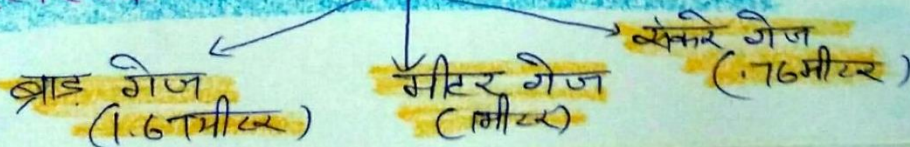 ब्राड गेज
(1.67मीटर)
मीटर गेज
(1मीटर)
सकरे गेज
(.76मीटर)